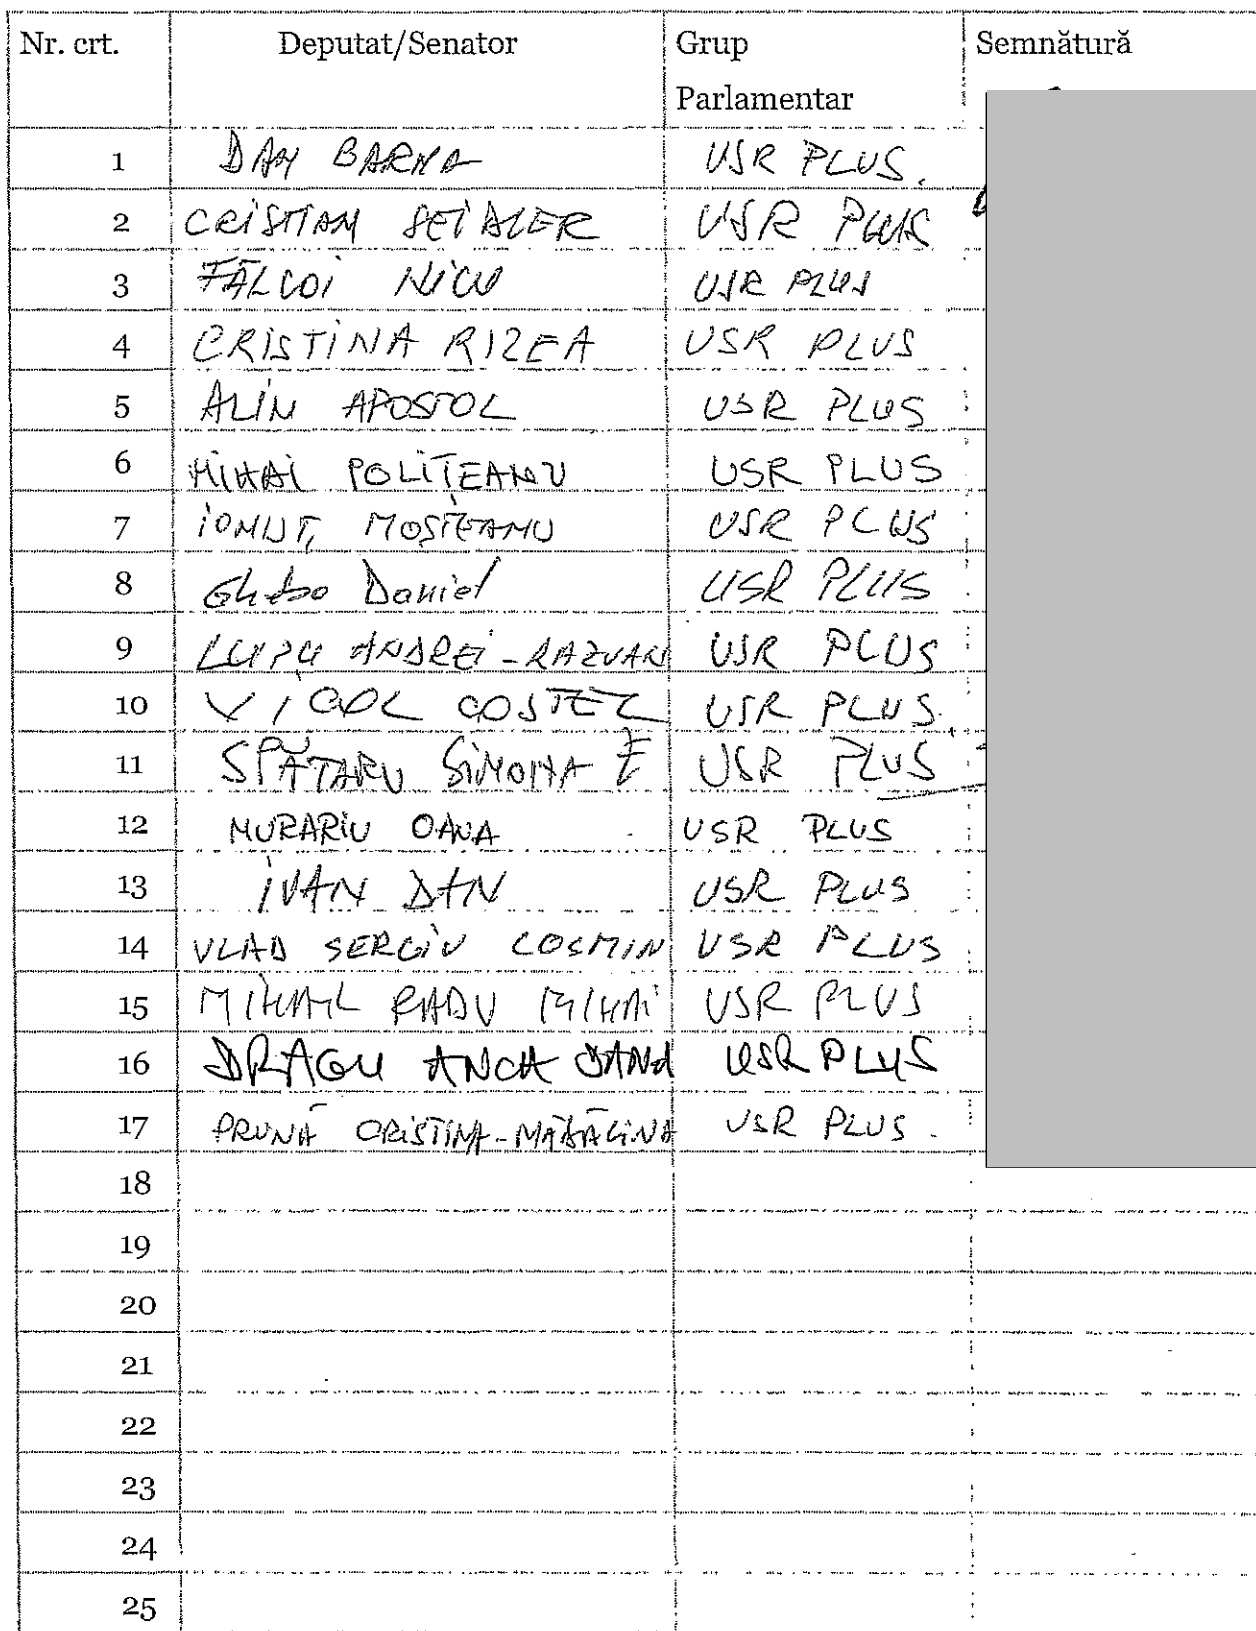 Nr. crt. Deputat/Senator Grup Parlamentar Semnătură
1 DAN BARNA USR PLUS.
2 CRISTIAN SEIDLER USR PLUS
3 FĂLCOI NICU USR PLUS
4 CRISTINA RIZEA USR PLUS
5 ALIN APOSTOL USR PLUS
6 MIHAI POLITEANU USR PLUS
7 IONUȚ MOȘTEANU USR PLUS
8 Daniel USR PLUS
9 LUPU ANDREI-RAZVAN USR PLUS
10 VICOL COSTEL USR PLUS.
11 SPĂTARU SIMONA E USR PLUS
12 MURARIU OANA USR PLUS
13 IVAN DAN USR PLUS
14 VLAD SERGIU COSMIN USR PLUS
15 MIHAIL RADU MIHAI USR PLUS
16 DRAGU ANCA DANA USR PLUS
17 PRUNĂ CRISTINA-MĂDĂLINA USR PLUS.
18
19
20
21
22
23
24
25